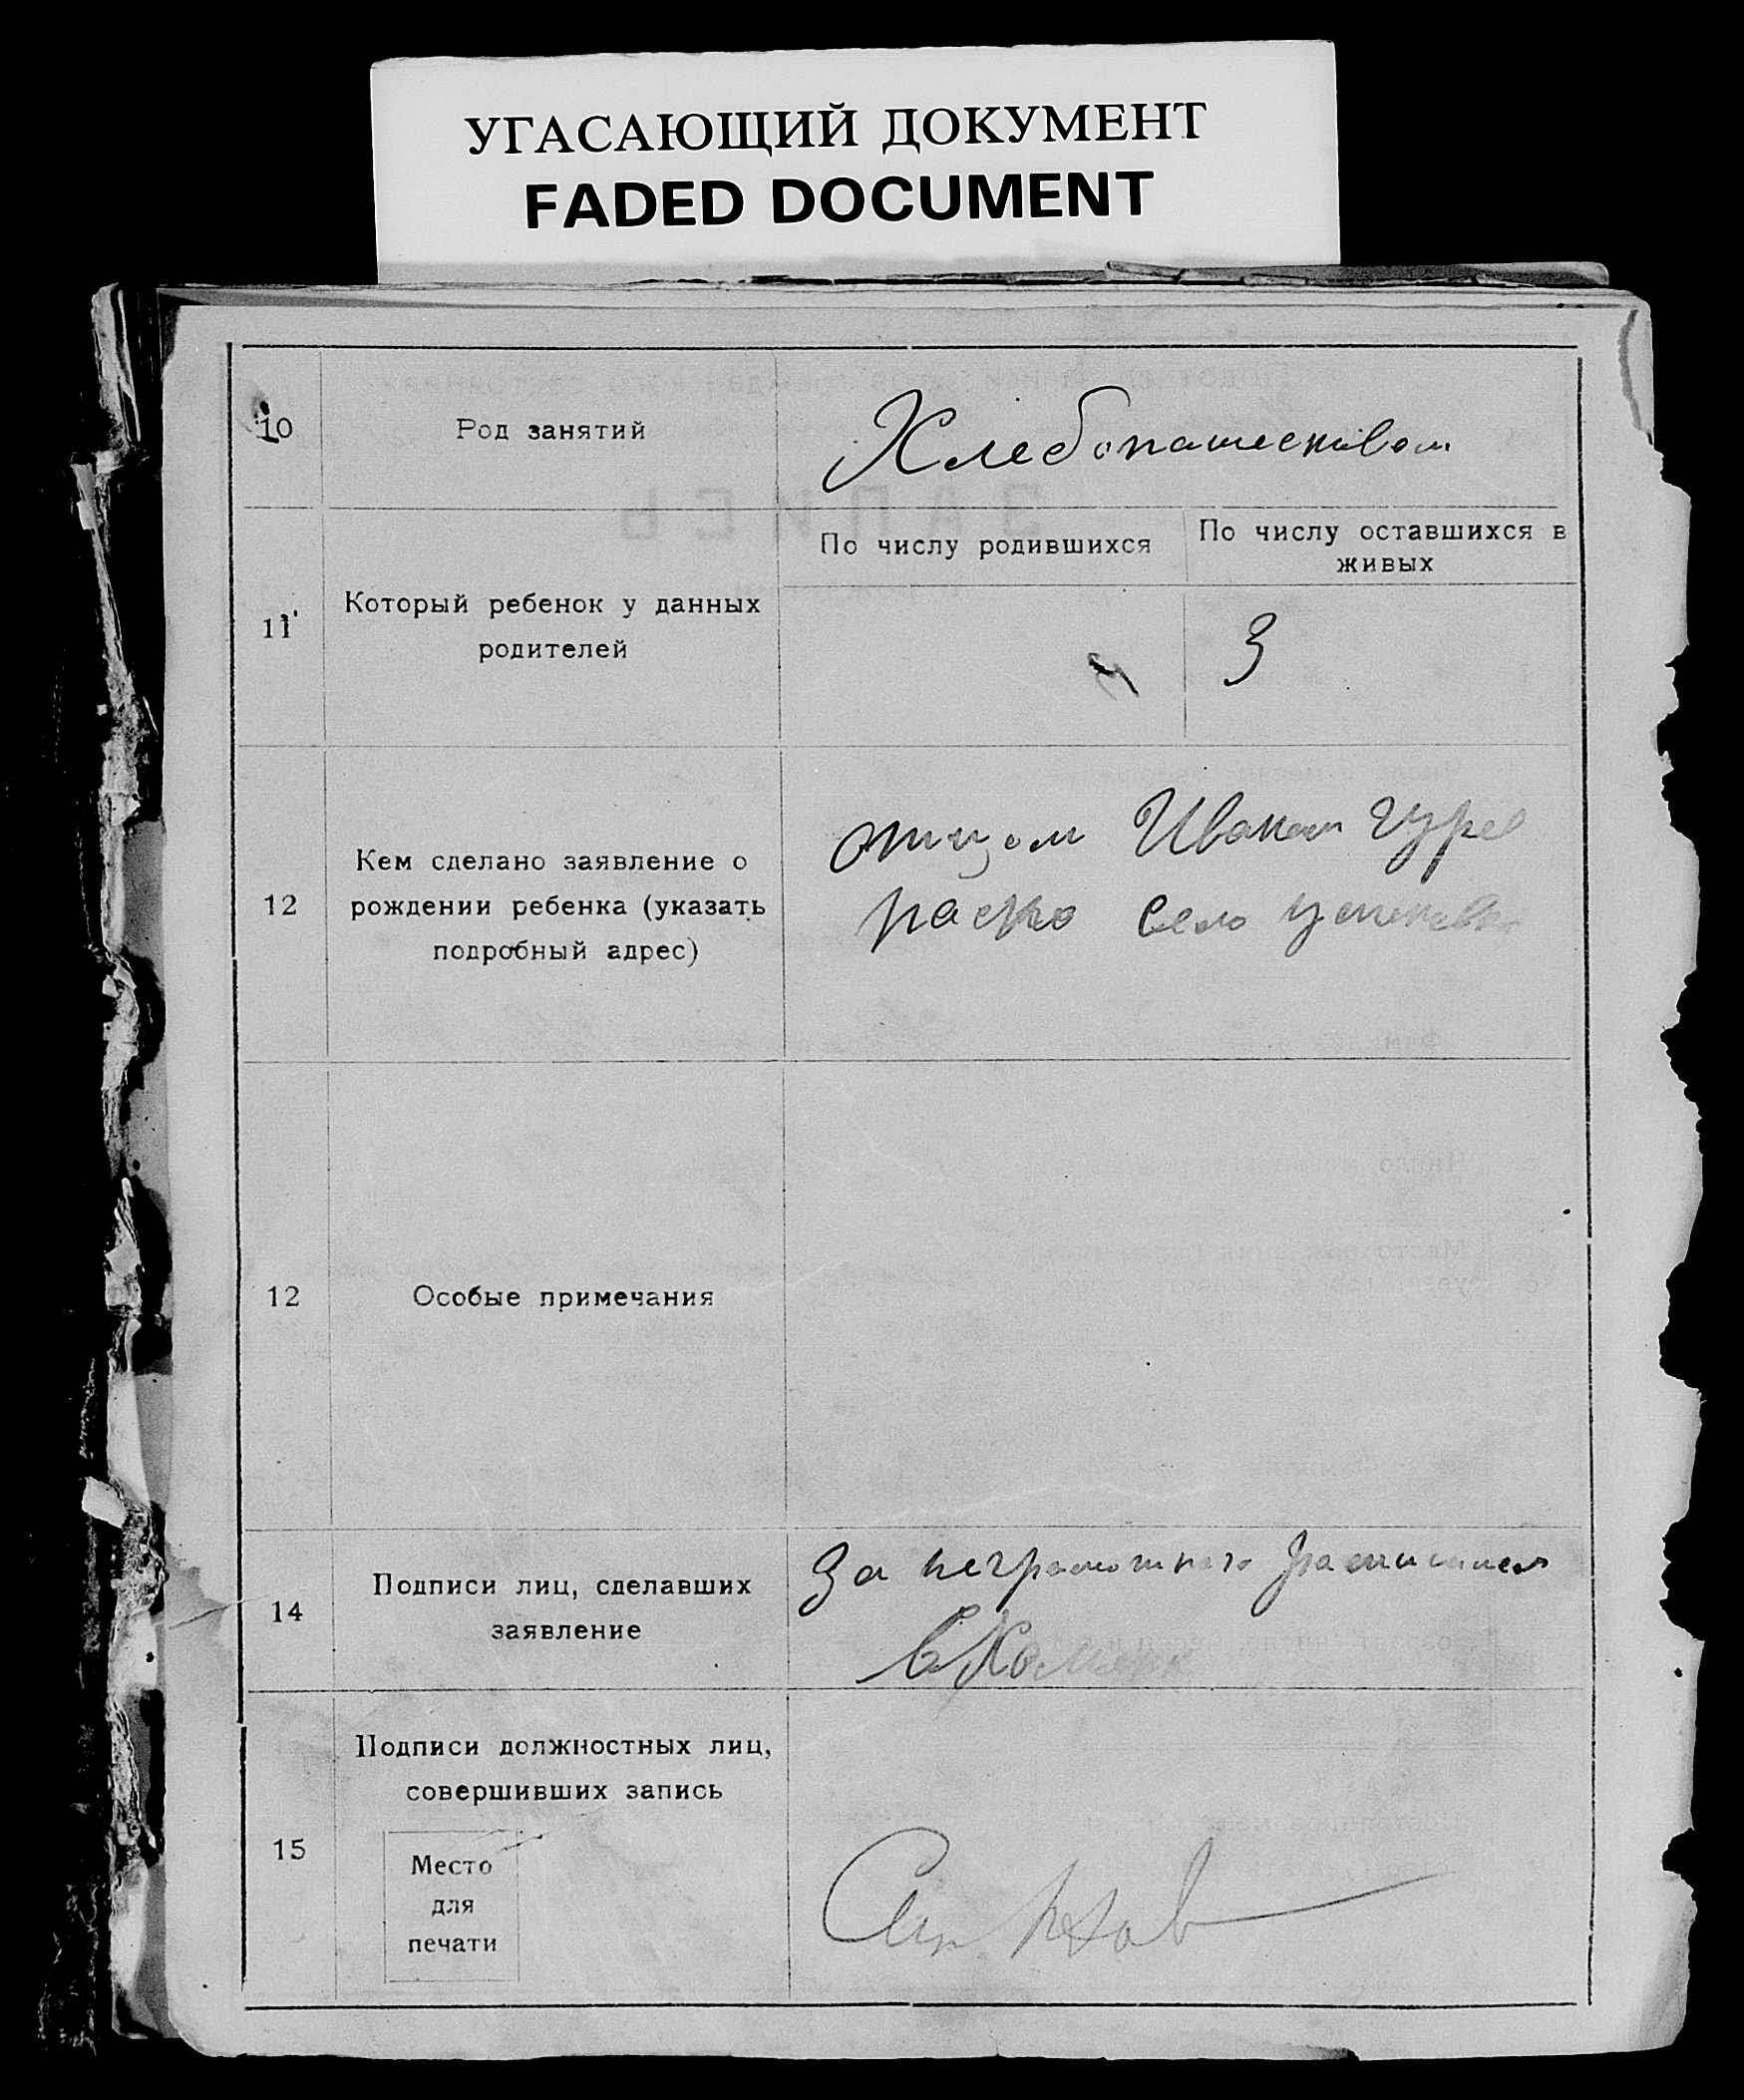 УГАСАЮЩИЙ ДОКУМЕНТ
FADED DOCUMENT
10
Род занятий
Хлебопашеством
11
Который ребенок у данных
родителей
По числу родившихся
По числу оставшихся в
живых
3
12
Кем сделано заявление о
рождении ребенка (указать
подробный адрес)
отцом Иваном
село
12
Особые примечания
14
Подписи лиц, сделавших
заявление
За неграмотного
15
Подписи должностных лиц,
совершивших запись
Место
для
печати